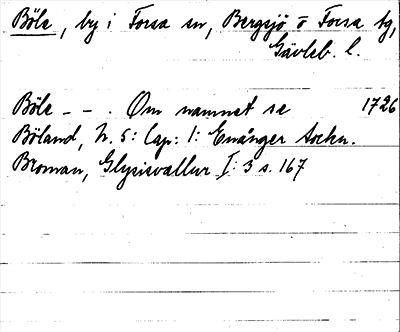 Böle, by i Forsa sn, Bergsjö o Forsa tg,
Gävleb. l.
Böle - - . Om namnet se 1726
Böland, N. 5: Cap: 1: Enånger sockn.
Broman, Glysisvallur I: 3 s. 167